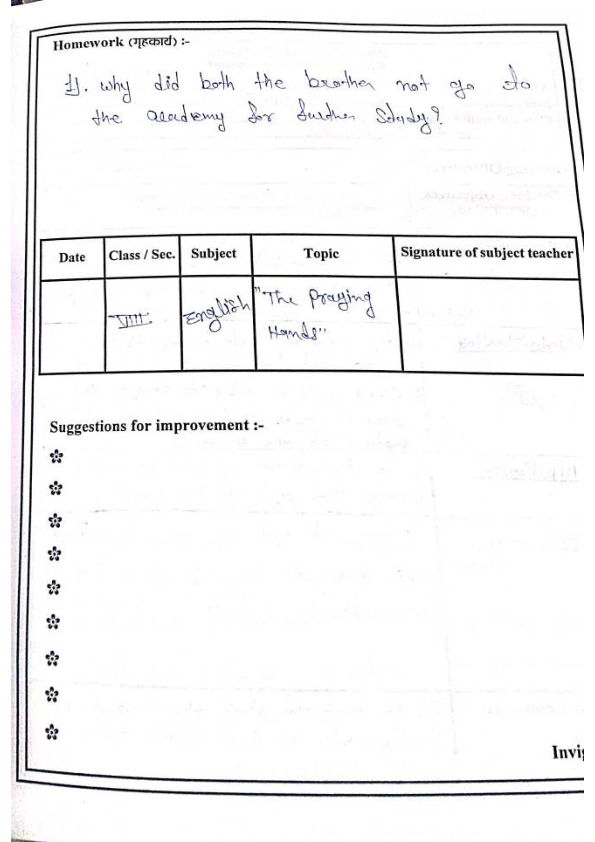 Homework (गृहकार्य) :-
1). why did both the brother not go to
the academy for further Study?
Date Class / Sec. Subject Topic Signature of subject teacher
VIII. English "The Praying
Hands"
Suggestions for improvement :-